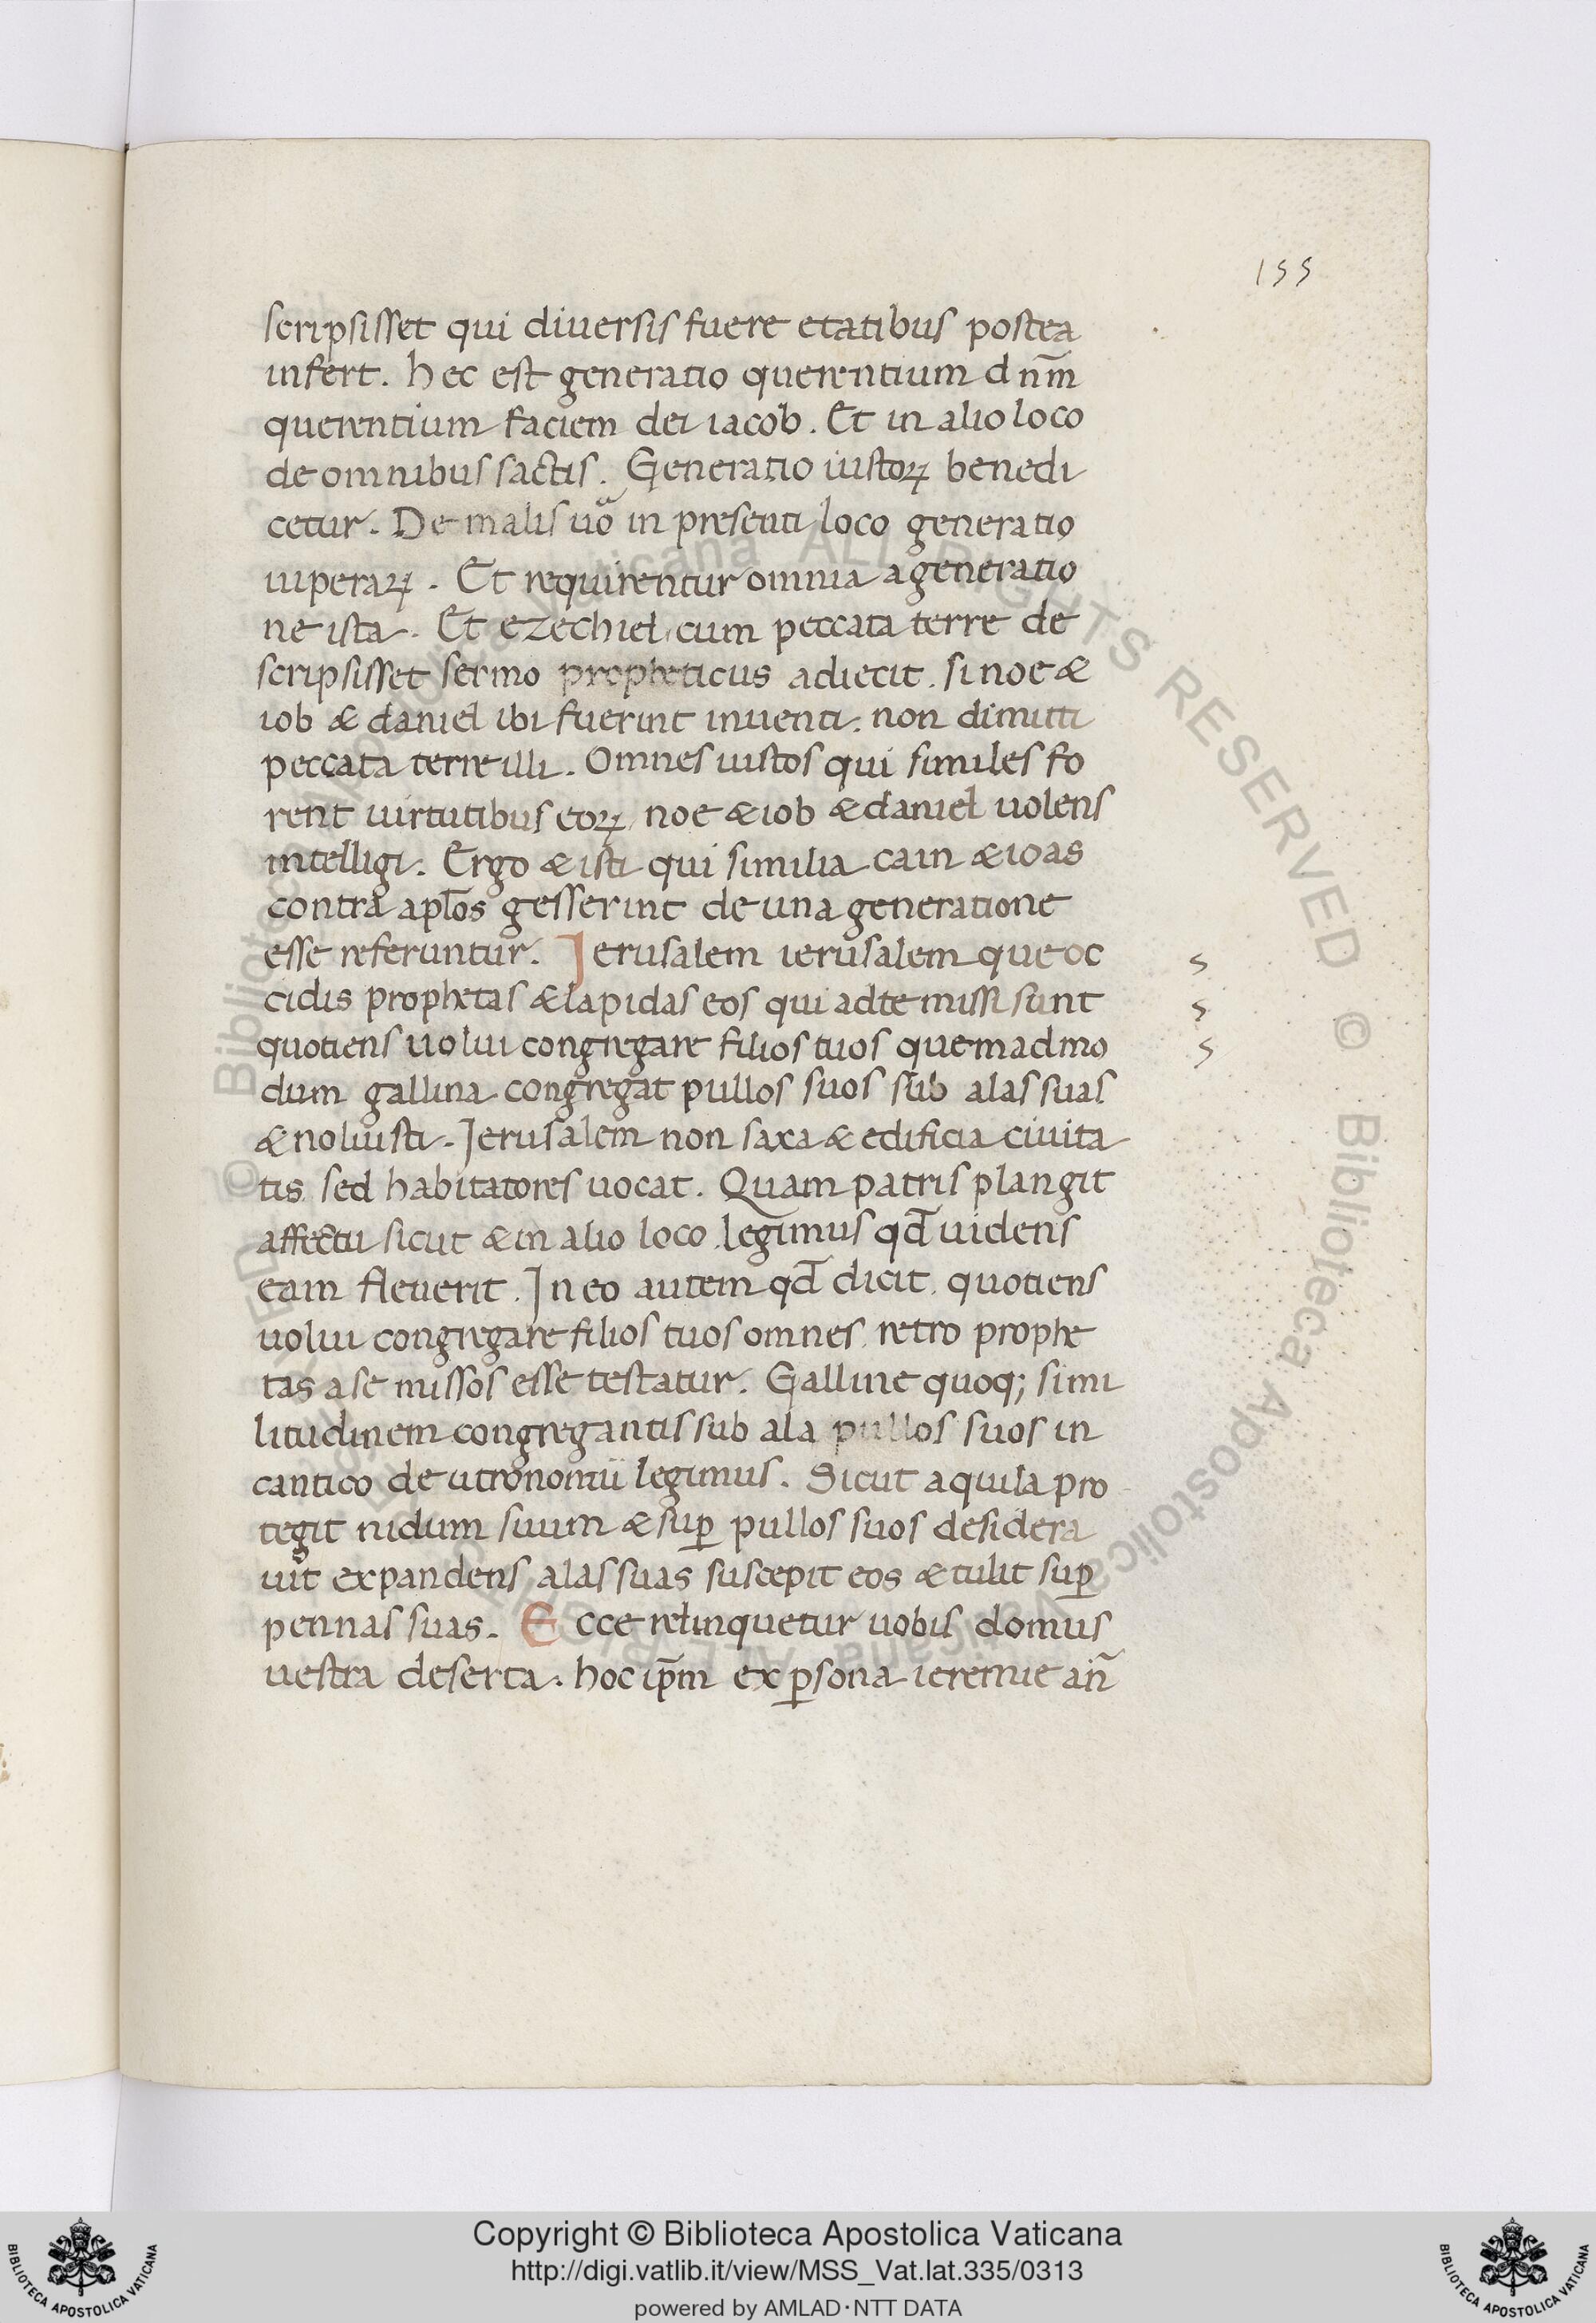 155
scripsisset qui diuersis fuere etatibus postea
infert. hec est generatio querentium dnm̄
querentium faciem dei iacob. Et in alio loco
de omnibus sactis. Generatio iustoꝝ benedi
cetur. De malis uo in presenti loco generatio
uiperaꝝ. Et requirentur omnia a generatio
ne ista. Et ezechiel cum peccata terre de
scripsisset sermo propheticus adiecit. si noe &
iob & daniel ibi fuerint inuenti. non dimitti
peccata terre illi. Omnes iustos qui similes fo
rent uirtutibus eoꝝ noe & iob & daniel uolens
intelligi. Ergo & isti qui similia cain & ioas
contra apl̄os gesserint de una generatione
esse referuntur. Jerusalem ierusalem que oc
cidis prophetas & lapidas eos qui ad te missi sunt
quotiens uolui congregare filios tuos quemadmo
dum gallina congregat pullos suos sub alas suas
& noluisti. Jerusalem non saxa & edificia ciuita
tis sed habitatores uocat. Quam patris plangit
affectu sicut & in alio loco legimus qd̄ uidens
eam fleuerit. In eo autem qd̄ dicit. quotiens
uolui congregare filios tuos omnes retro prophe
tas a se missos esse testatur. Galline quoq; simi
litudinem congregantis sub ala pullos suos in
cantico deutronomii legimus. Sicut aquila pro
tegit nidum suum & sup̱ pullos suos desidera
uit expandens alas suas suscepit eos & tulit sup̱
pennas suas. Ecce relinquetur uobis domus
uestra deserta. hoc ip̄m ex ꝑsona ieremie an̄
s
s
s
© Biblioteca Apostolica Vaticana ALL RIGHTS RESERVED © Biblioteca Apostolica Vaticana ALL RIGHTS RESERVED
Copyright © Biblioteca Apostolica Vaticana
http://digi.vatlib.it/view/MSS_Vat.lat.335/0313
powered by AMLAD·NTT DATA
BIBLIOTECA APOSTOLICA VATICANA
BIBLIOTECA APOSTOLICA VATICANA